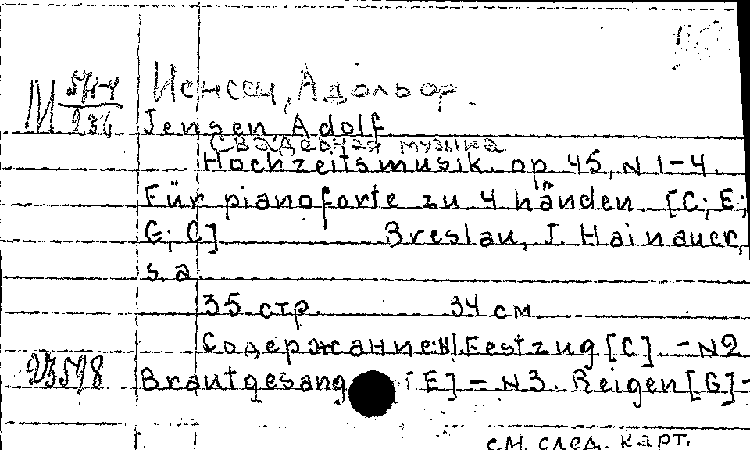 Иенсен, Адольф.
М 571-4/236
Jensen Adolf
Свадебная музыка
Hochzeitsmusik op. 45, N 1-4.
Für pianoforte zu 4 händen. [C; E;
G; C] Breslau, J. Hainauer,
s. a.
35 стр. 34 см
Содержание: N1 Festzug [C]. - N2
23598 Brautgesang [E] - N3. Reigen [G] -
см. след. карт.